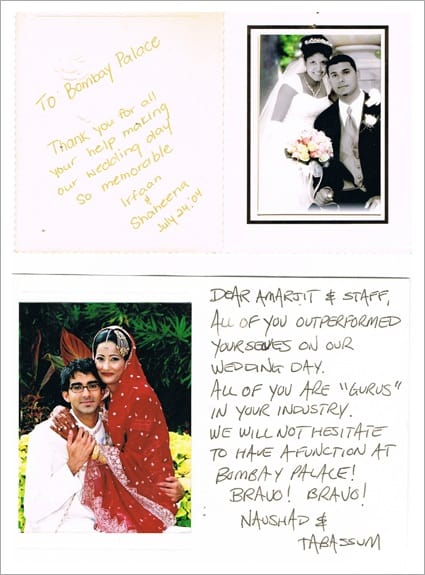 To: Bombay Palace
Thank you for all
your help making
our wedding day
so memorable
Irfaan
&
Shaheena
July 24.'04
DEAR AMARJIT & STAFF,
ALL OF YOU OUTPERFORMED
YOURSELVES ON OUR
WEDDING DAY.
ALL OF YOU ARE "GURUS"
IN YOUR INDUSTRY.
WE WILL NOT HESITATE
TO HAVE A FUNCTION AT
BOMBAY PALACE!
BRAVO! BRAVO!
NAUSHAD &
TABASSUM